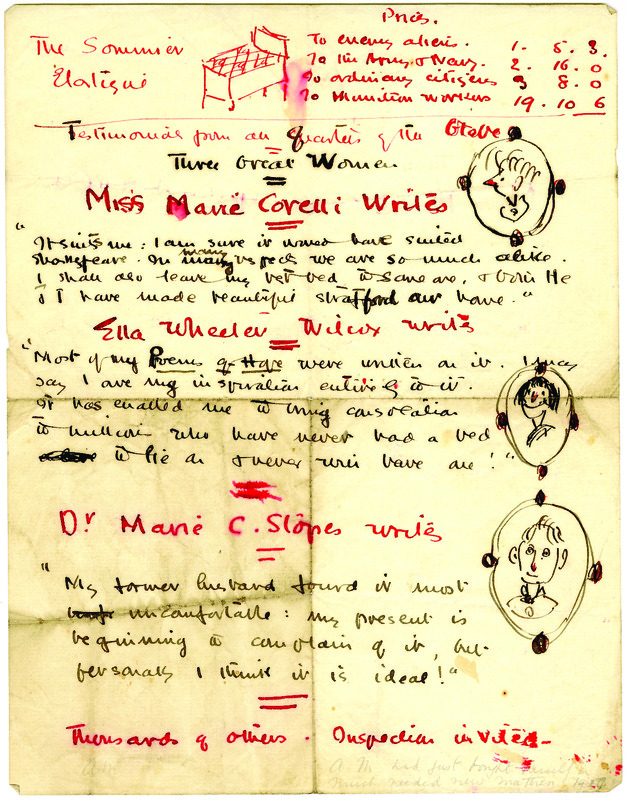 Prices.
The Sommier
Elastique
To enemy aliens. 1. 5. 3.
To the Army & Navy. 2. 16. 0
To ordinary citizens 3 8. 0
To Munition workers 19. 10. 6
Testimonials from all quarters of the Globe
Three Great Women
Miss Marie Corelli Writes
"It suits me: I am sure it would have suited
Shakespeare. In many respects we are so much alike.
I shall also leave my vet bed to someone, & both He
& I have made beautiful Stratford our home."
Ella Wheeler Wilcox writes
"Most of my Poems of Hope were written on it. I may
say I owe my inspiration entirely to it.
It has enabled me to bring consolation
to millions who have never had a bed
to lie on & never will have one!"
Dr Marie C. Stopes writes
"My former husband found it most
uncomfortable: my present is
beginning to complain of it, but
personally I think it is ideal!"
Thousands of others. Inspection invited.
A. M. had just bought himself a
much needed new mattress